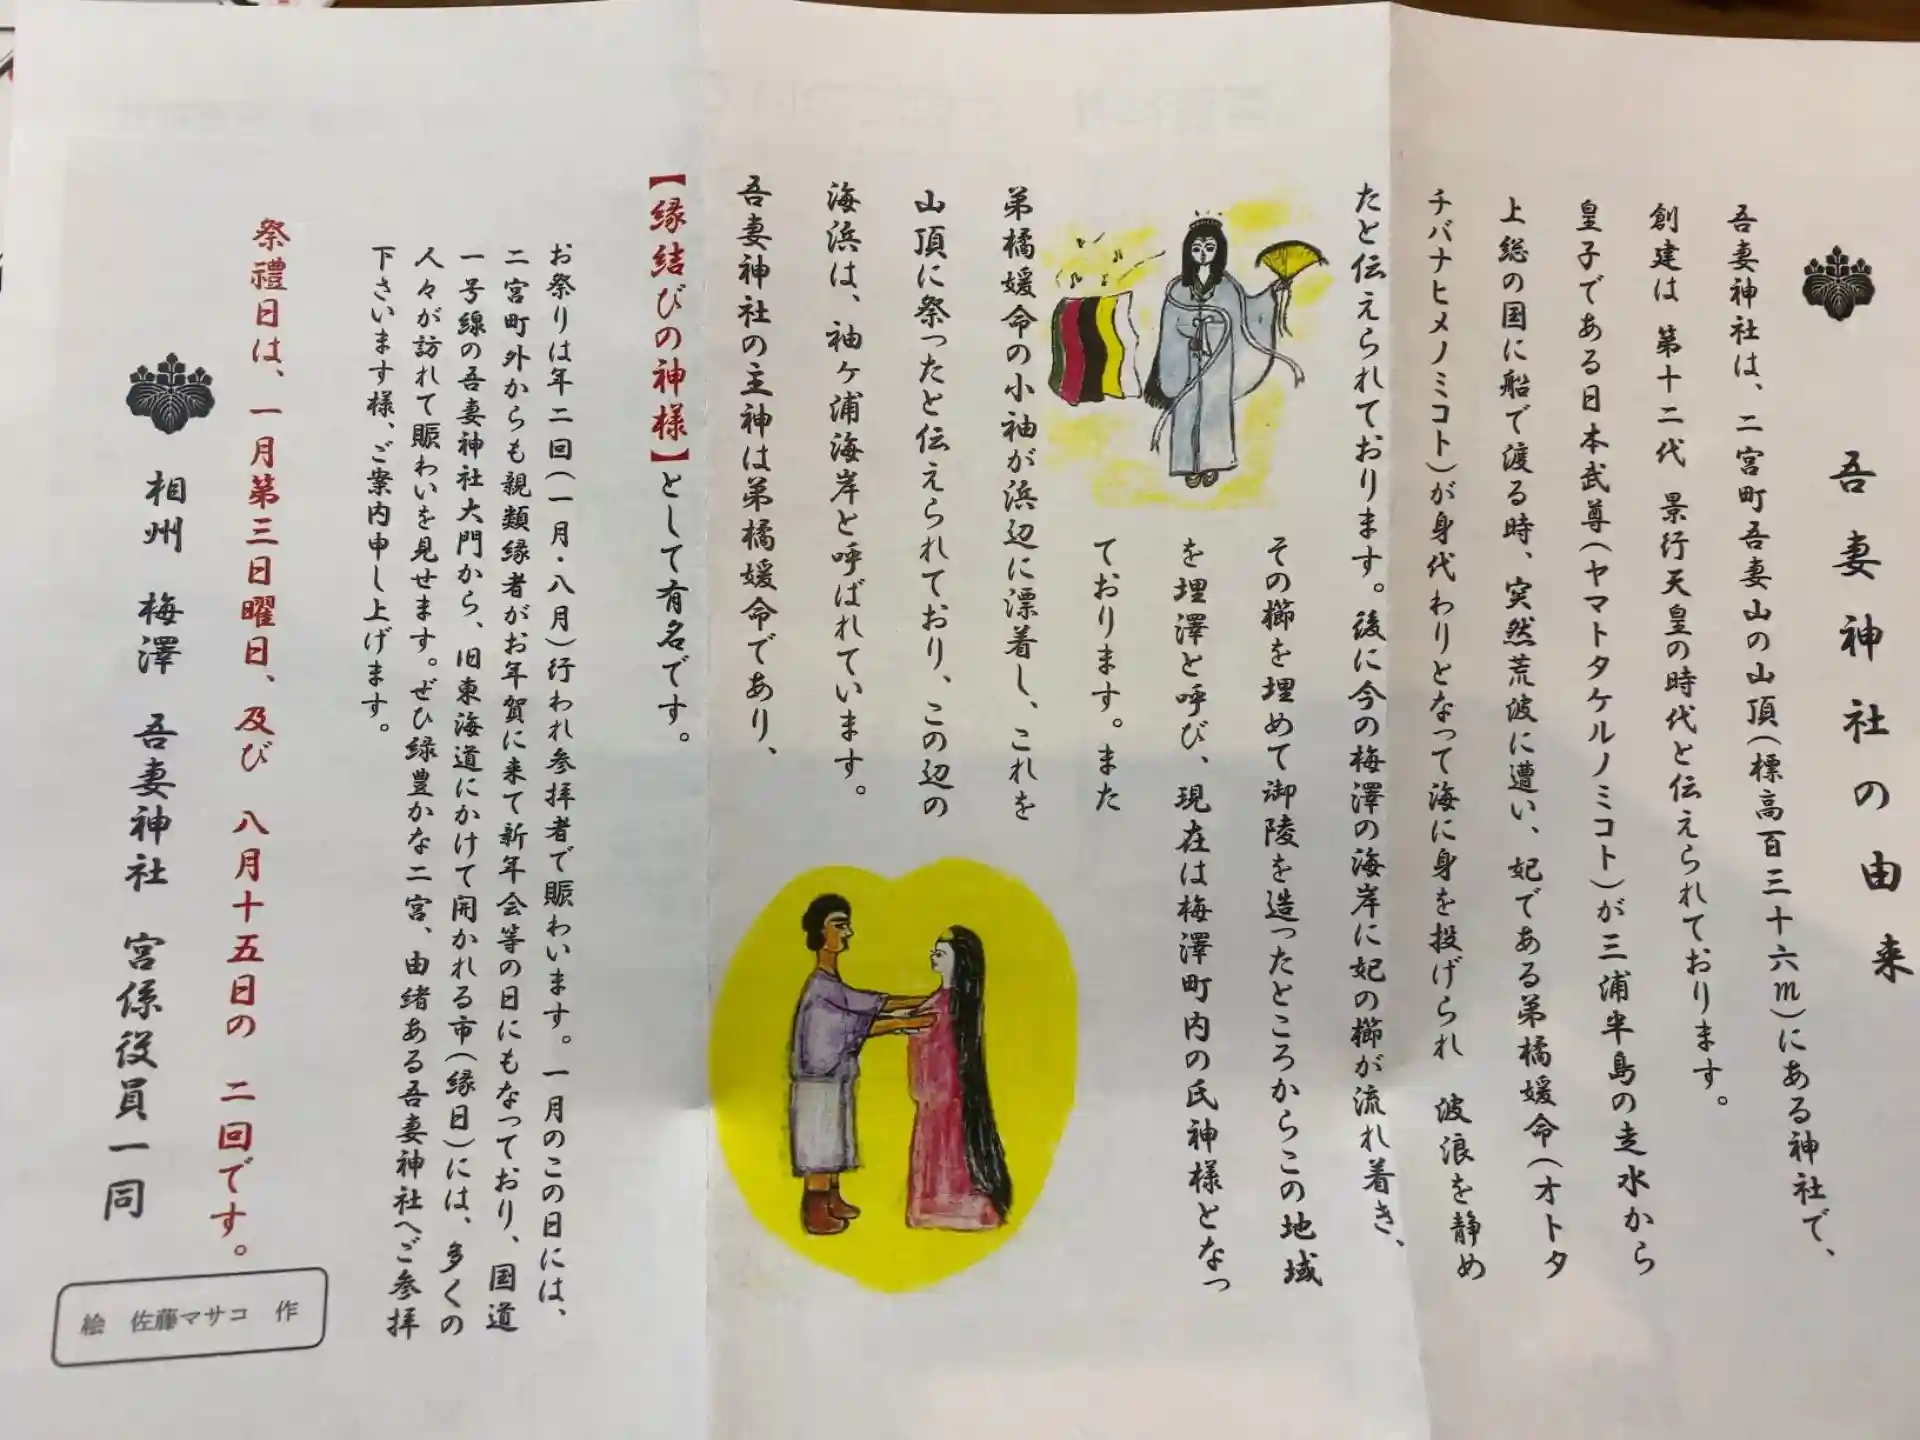 吾妻神社の由来
吾妻神社は、二宮町吾妻山の山頂(標高百三十六m)にある神社で、
創建は 第十二代 景行天皇の時代と伝えられております。
皇子である日本武尊(ヤマトタケルノミコト)が三浦半島の走水から
上総の国に船で渡る時、突然荒波に遭い、妃である弟橘媛命(オトタ
チバナヒメノミコト)が身代わりとなって海に身を投げられ 波浪を静め
たと伝えられております。後に今の梅澤の海岸に妃の櫛が流れ着き、
その櫛を埋めて御陵を造ったところからこの地域
を埋澤と呼び、現在は梅澤町内の氏神様となっ
ております。また
弟橘媛命の小袖が浜辺に漂着し、これを
山頂に祭ったと伝えられており、この辺の
海浜は、袖ヶ浦海岸と呼ばれています。
吾妻神社の主神は弟橘媛命であり、
【縁結びの神様】として有名です。
お祭りは年二回(一月・八月)行われ参拝者で賑わいます。一月のこの日には、
二宮町外からも親類縁者がお年賀に来て新年会等の日にもなっており、国道
一号線の吾妻神社大門から、旧東海道にかけて開かれる市(縁日)には、多くの
人々が訪れて賑わいを見せます。ぜひ緑豊かな二宮、由緒ある吾妻神社へご参拝
下さいます様、ご案内申し上げます。
祭禮日は、一月第三日曜日、及び 八月十五日の 二回です。
相州 梅澤 吾妻神社 宮係役員一同
絵 佐藤マサコ 作